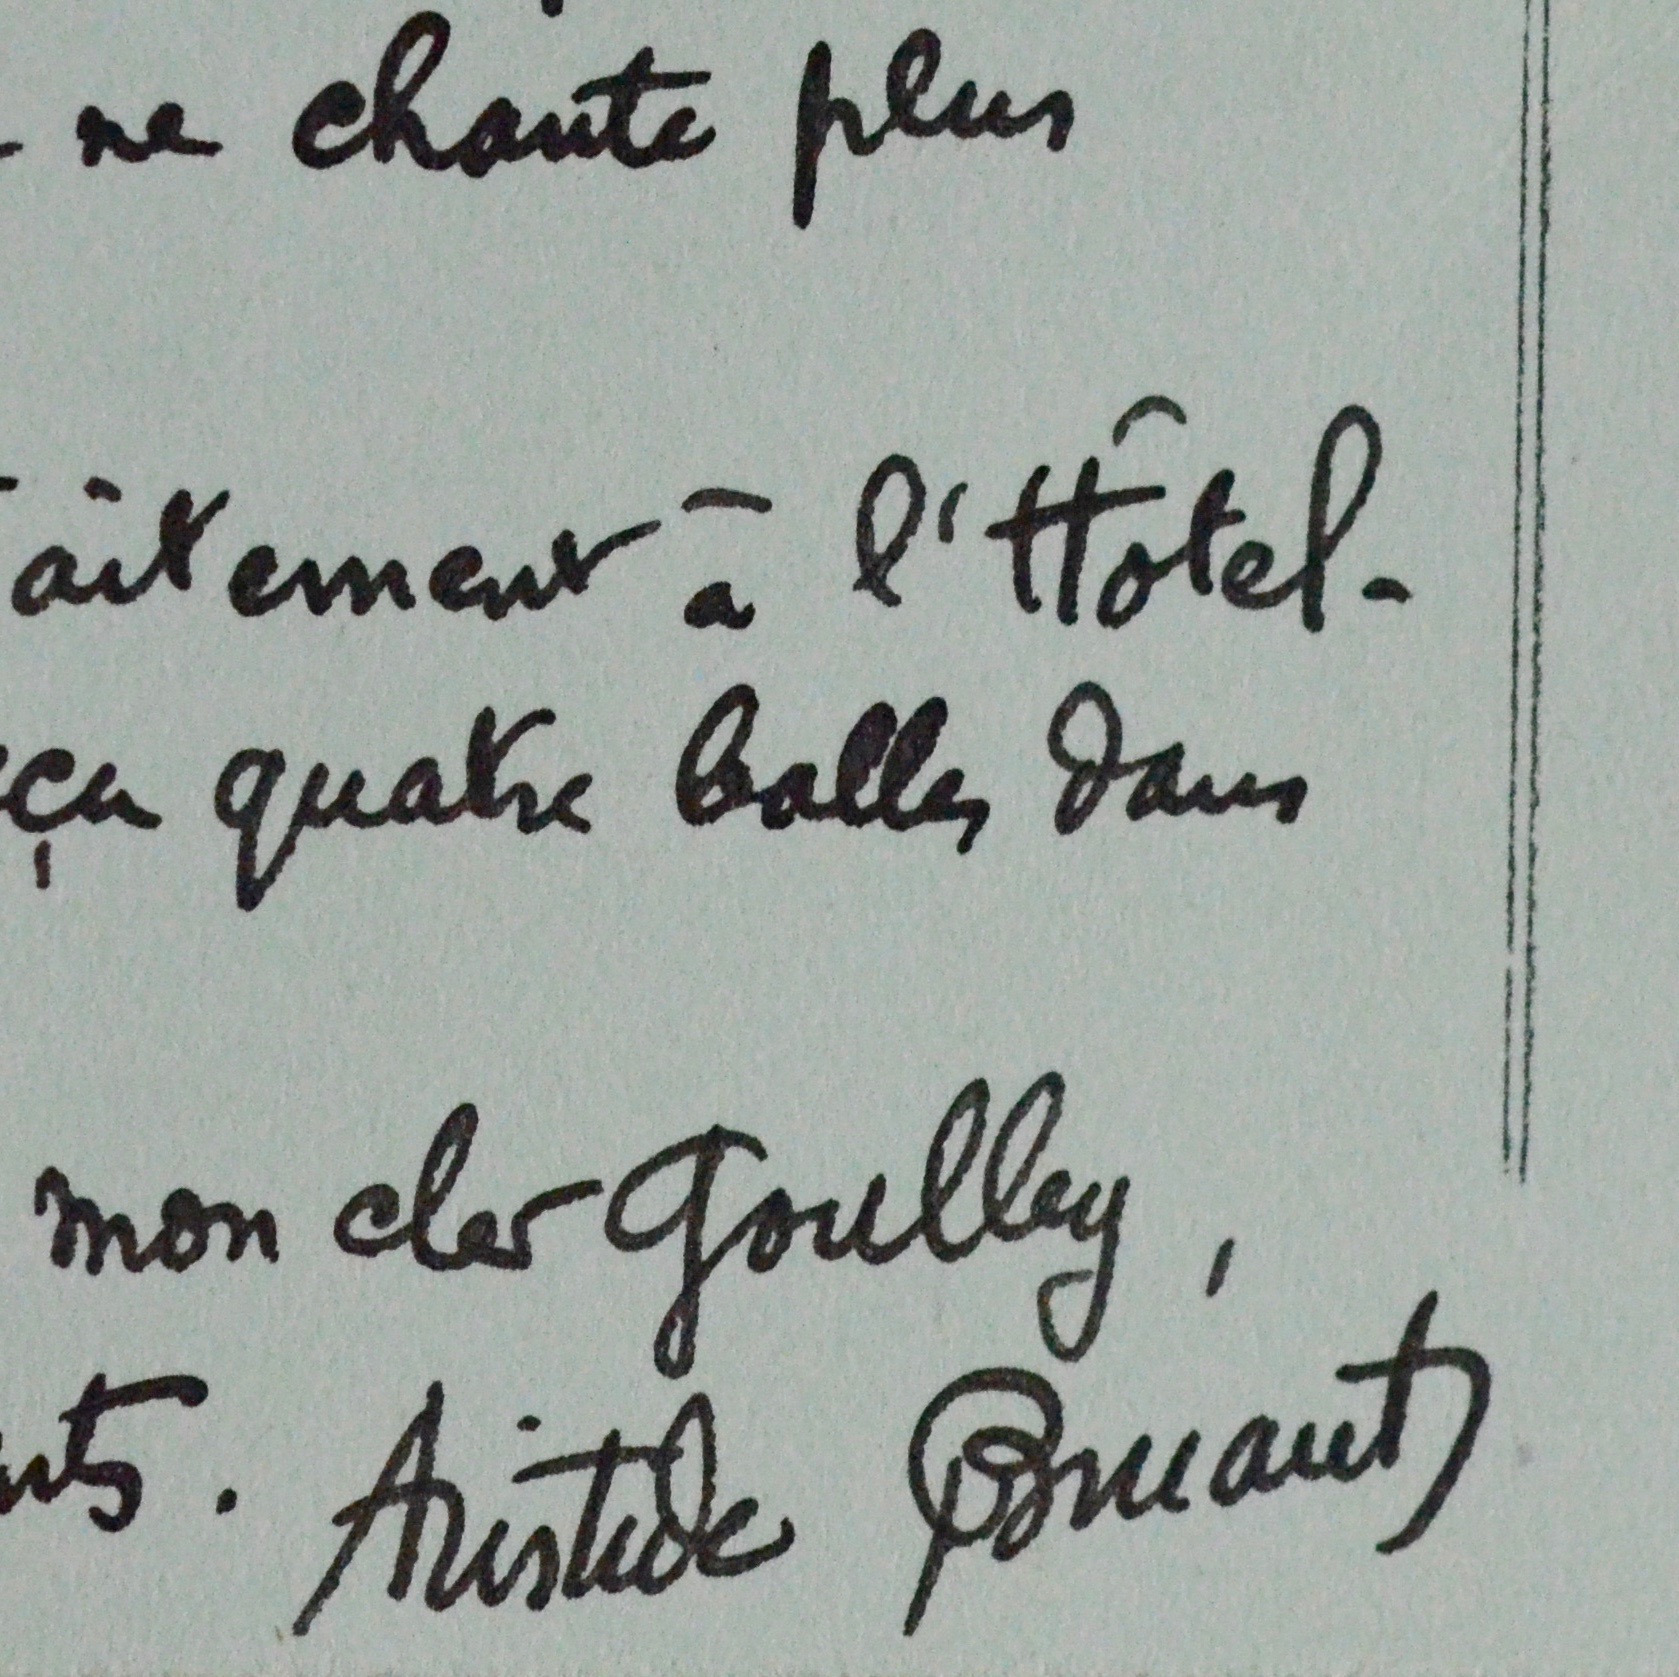 ne chante plus
aitement à l'Hôtel-
eçu quatre balles dans
mon cher Goulley,
nts. Aristide Bruant